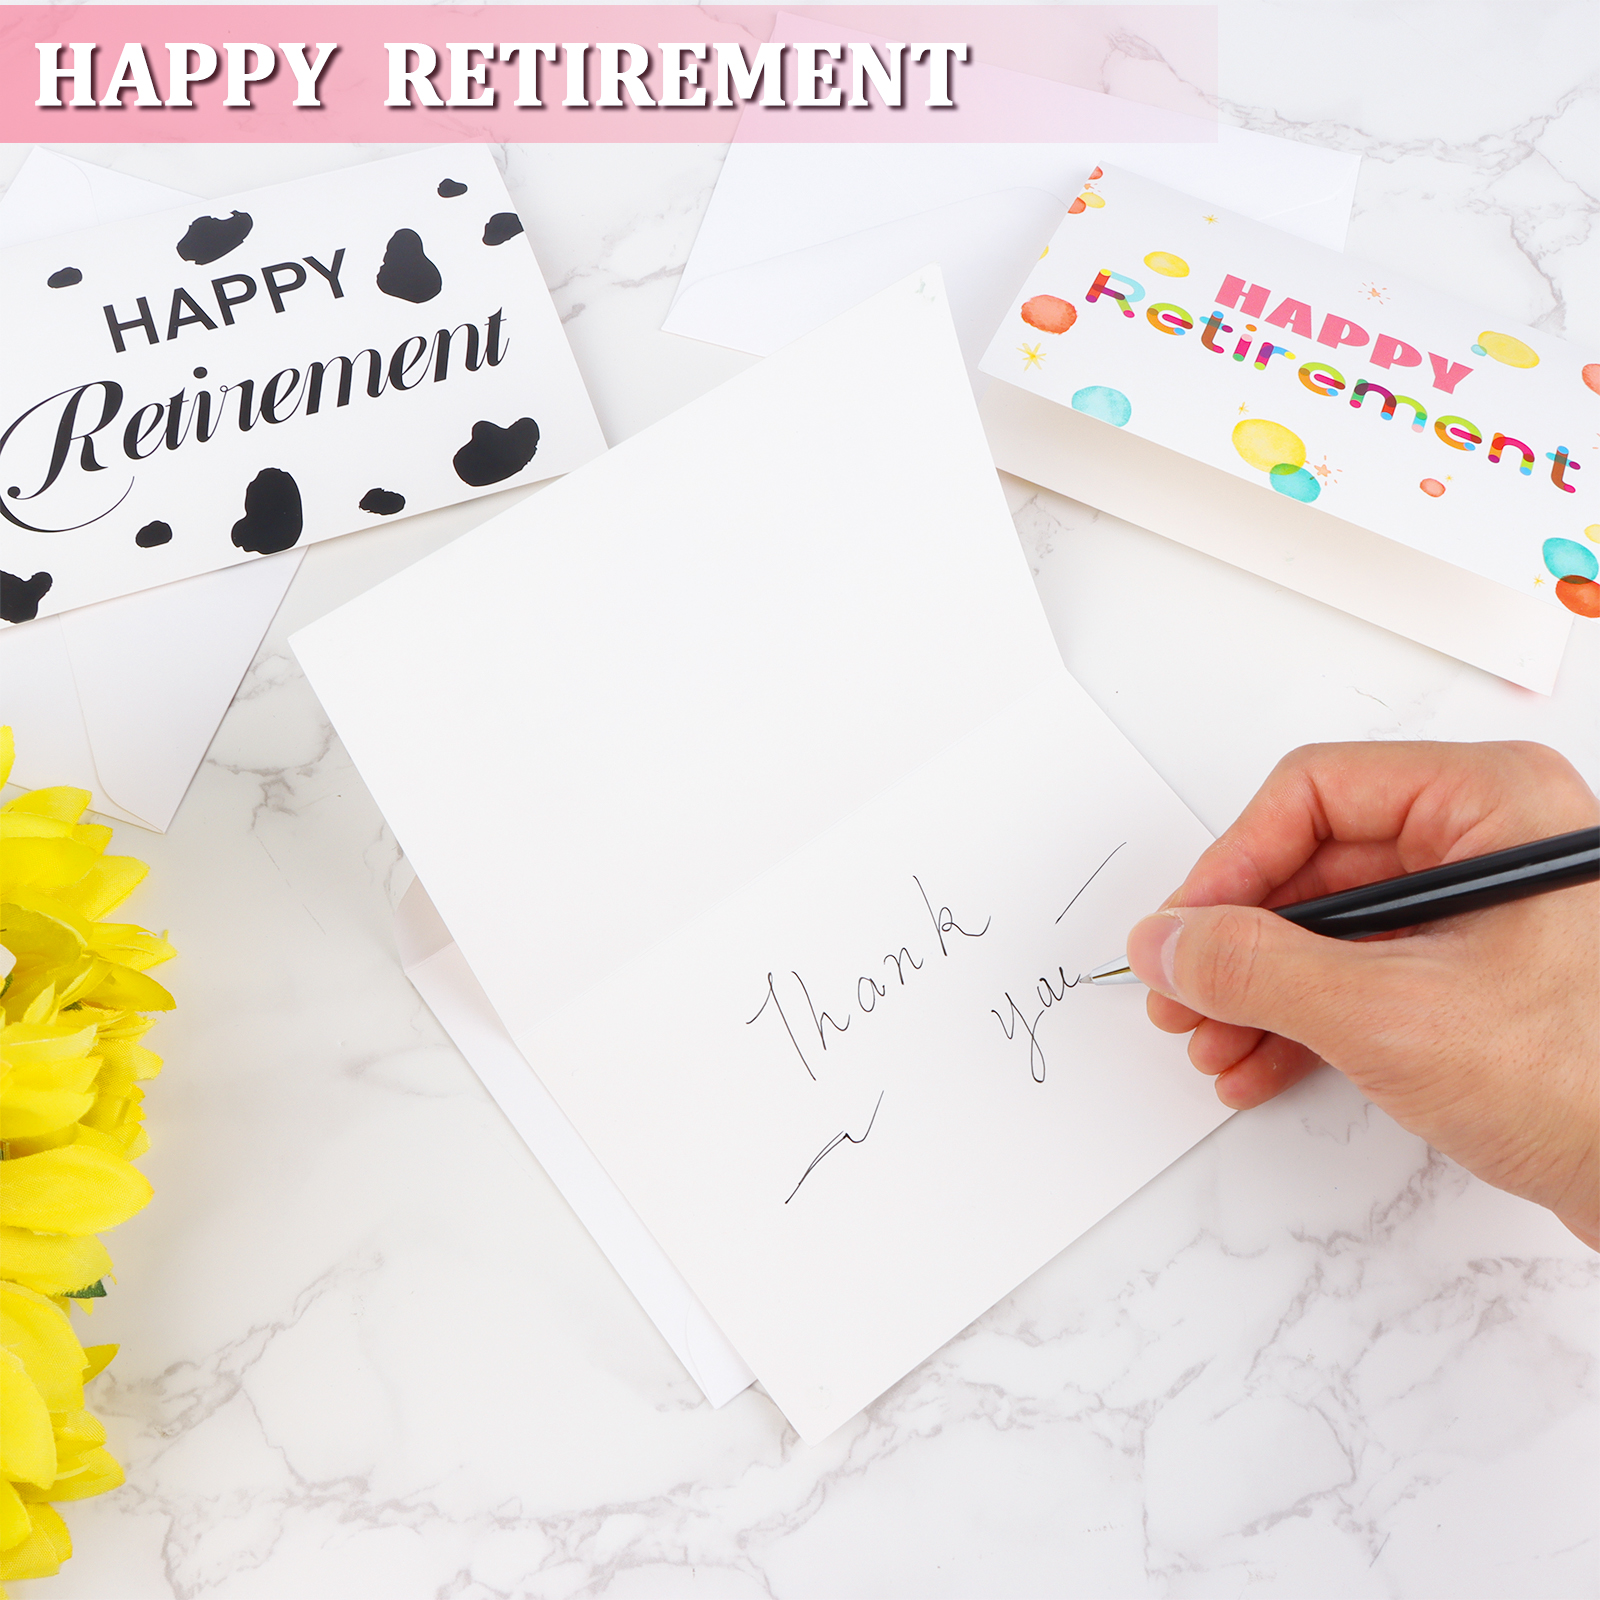 HAPPY RETIREMENT
HAPPY
Retirement
HAPPY
Retirement
Thank
you